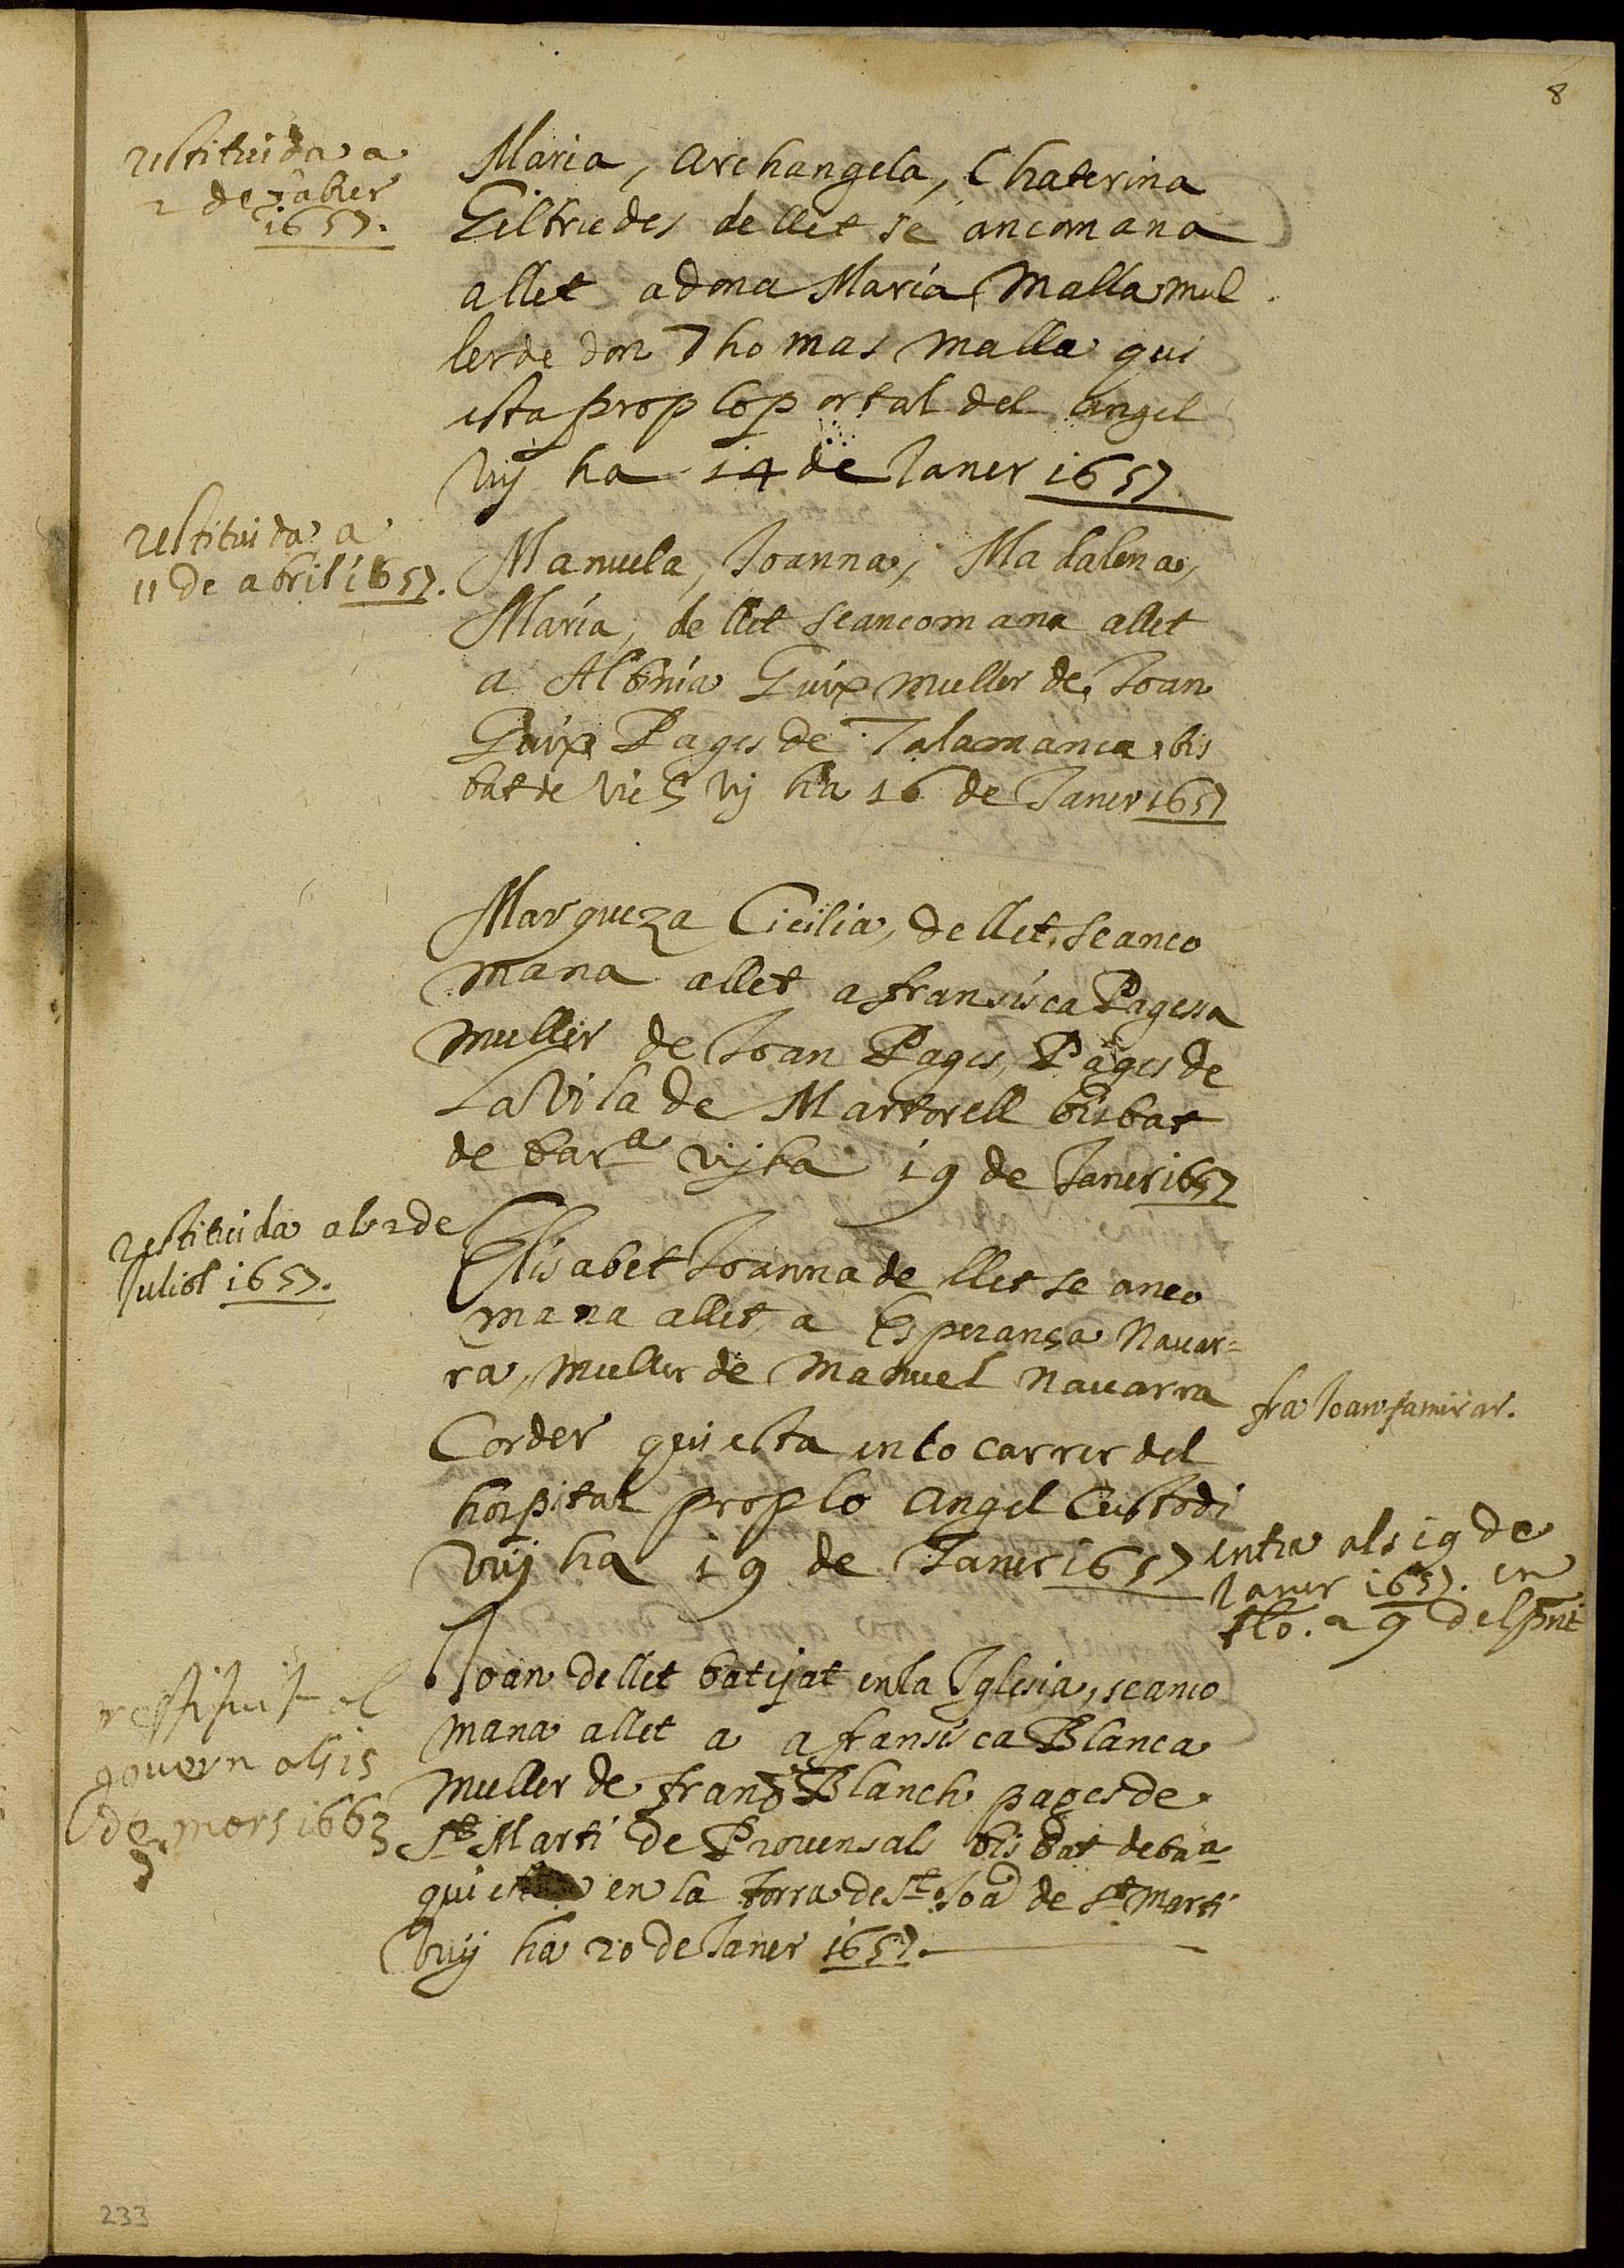 8
restituida a
2 de 7abler
1657.
Maria, Archangela, Chaterina
Geltrudes de llet se ancomana
allet a dona Maria Malla mul
ler de don Thomas Malla qui
esta prop lo portal del Angel
vij ha 14 de Janer 1657
restituida a
11 de abril 1657.
Manuela, Joanna, Madalena,
Maria, de llet se ancomana allet
a Albnia Guix muller de Joan
Guix Pages de Talamanca bis
bat de Vich vij ha 16 de Janer 1657
Margueza Cicilia, de llet, se anco
mana allet a fransisca Pagesa
muller de Joan Pages, Pages de
La Vila de Martorell bisbat
de Barª vij ha 19 de Janer 1657
restituida als 2 de
Juliol 1657.
Elisabet Joanna de llet se anco
mana allet, a Esperansa Nauar=
ra, muller de Manuel Nauarra
Corder qui esta en lo carrer del
hospital prop lo Angel Custodi
vuy ha 19 de Janer 1657
fra Joan
entra als 19 de
Janer 1657. en
flo. 29 del pnt
restituit al
govern als 15
de mars 1663
Joan de llet batejat en la Iglesia, se anco
mana allet a a fransisca Blanca
muller de franc Blanch pages de
St Marti de Prouensals bisbat de bnª
qui esta en la torra de St Joa de St Marti
vuy ha 20 de Janer 1657.
233